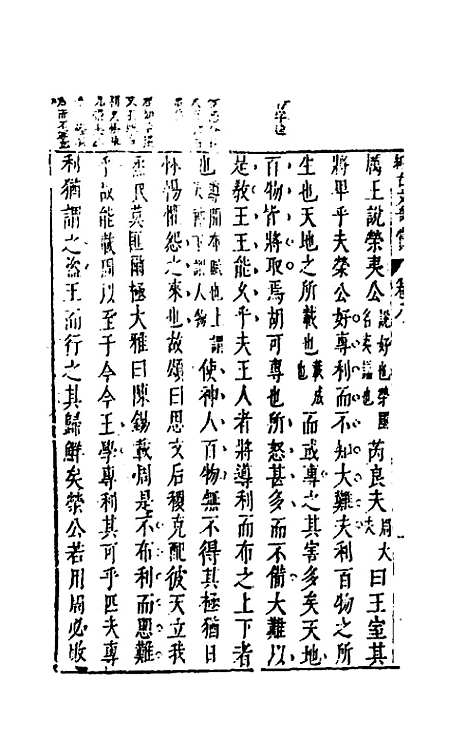 厲王說榮夷公說好也榮國名夷諡也芮良夫周大夫曰王室其
將卑乎夫榮公好專利而不知大難夫利百物之所
生也天地之所載也載成也而或專之其害多矣天地
百物皆將取焉胡可專也所怒甚多而不備大難以
是教王王能久乎夫王人者將導利而布之上下者
也導開布賦也上謂天神下謂人物使神人百物無不得其極猶日
怵惕懼怨之來也故頌曰思文后稷克配彼天立我
烝民莫匪爾極大雅曰陳錫載周是不布利而思難
乎故能載周以至于今今王學專利其可乎匹夫專
利猶謂之盜王而行之其歸鮮矣榮公若用周必敗